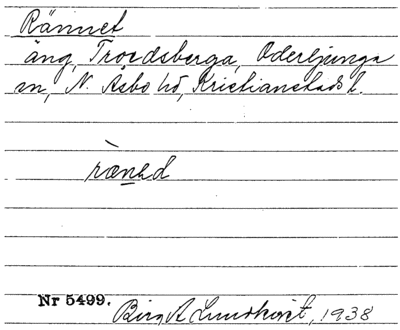 Rännet
äng, Troedsberga, Oderljunga
sn, N. Åsbo hd, Kristianstads l.
ræ̀nəd
Nr 5499. Birg. A. Lundkvist, 1938